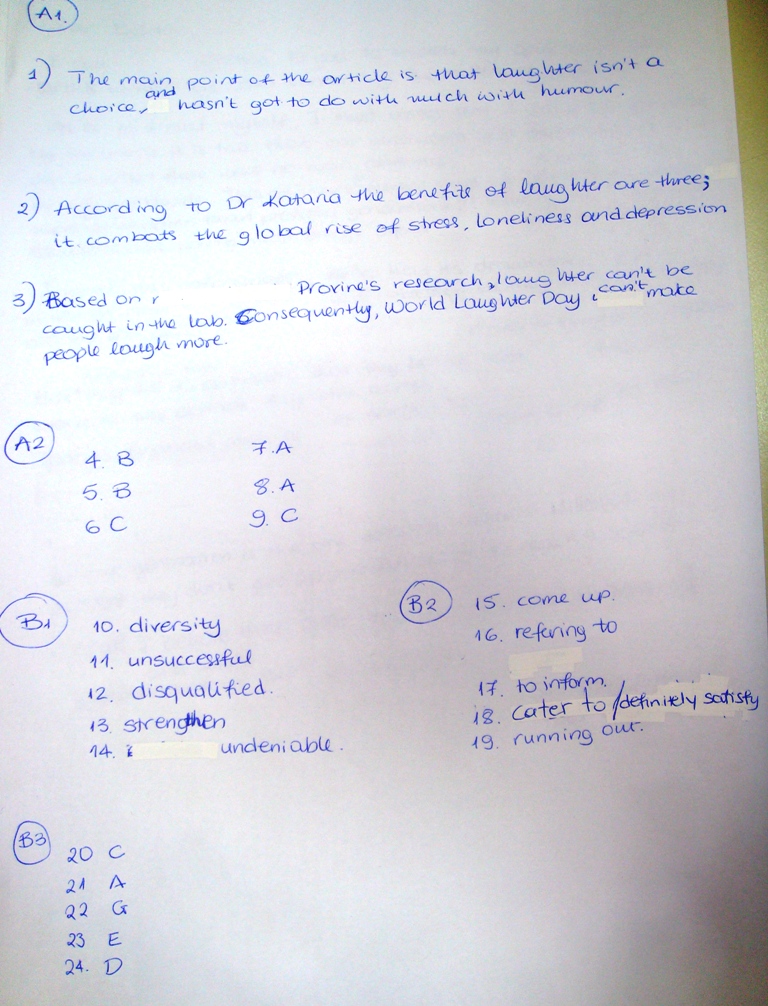 A1.
1) The main point of the article is that laughter isn't a
choice, and hasn't got to do with much with humour.
2) According to Dr Kataria the benefits of laughter are three;
it combats the global rise of stress, loneliness and depression
3) Based on r Provine's research, laughter can't be
caught in the lab. Consequently, World Laughter Day can't make
people laugh more.
A2
4. B
5. B
6 C
7. A
8. A
9. C
B1
10. diversity
11. unsuccessful
12. disqualified.
13. strengthen
14. undeniable.
B2
15. come up.
16. refering to
17. to inform.
18. cater to / definitely satisfy
19. running out.
B3
20 C
21 A
22 G
23 E
24. D